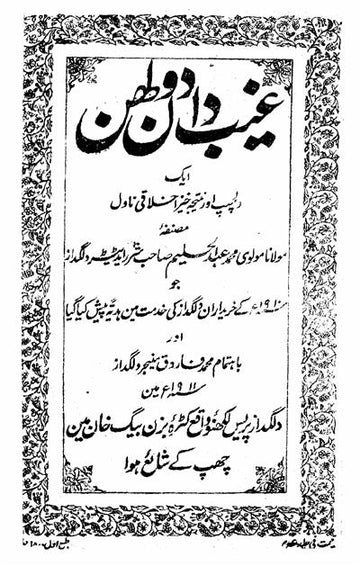 غیب دان دولھن
ایک
دلچسپ اور نتیجہ خیز اخلاقی ناول
مصنفۂ
مولانا مولوی محمد عبدالحلیم صاحب شرر ایڈیٹر دلگداز
جو
۱۹۱۰ء کے خریداران دلگداز کی خدمت مین ہدیۃً پیش کیا گیا
اور
باہتمام محمد فاروق منیجر دلگداز
سنہ ۱۹۱۱ء مین
دلگداز پریس لکھنؤ واقع کٹرۂ بزن بیگ خان مین
چھپ کے شائع ہوا
طبع اول
قیمت فی جلد